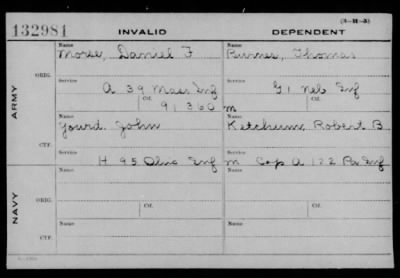 (3-11-3)
132981 INVALID DEPENDENT
Name Name
Morse, Daniel F Burnes, Thomas
ORIG.
Service Service
A 39 Mass Inf G 1 Neb Inf
Ctf. Ctf.
91360 m
ARMY
Name Name
Yourd. John Ketchum, Robert B
CTF.
Service Service
H 95 Ohio Inf m Cop A 122 Pa Inf
Name Name
ORIG.
Service Ctf. Service Ctf.
NAVY
Name Name
CTF.
Service Service